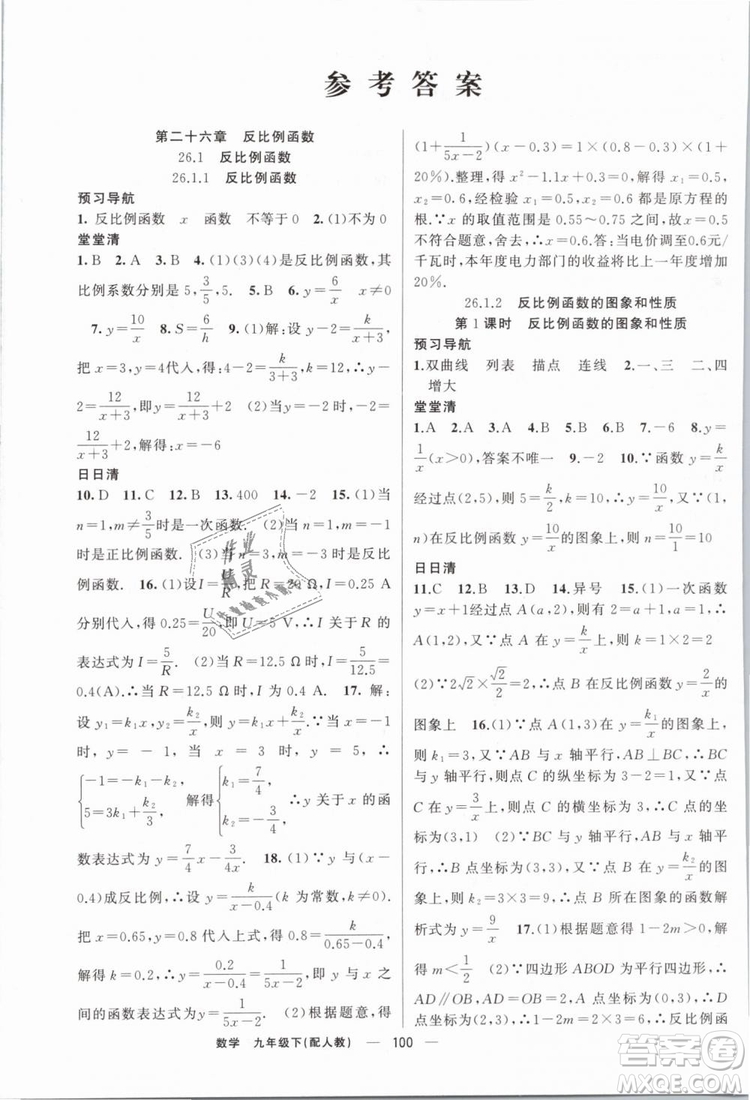 参考答案
第二十六章　反比例函数
26.1　反比例函数
26.1.1　反比例函数
预习导航
1.反比例函数　x　函数　不等于0　2.(1)不为0
堂堂清
1.B　2.A　3.B　4.(1)(3)(4)是反比例函数,其
比例系数分别是5,3/5,5.　5.A　6.y=6/x　x≠0
7.y=10/x　8.S=6/h　9.(1)解:设 y=k/(x+3)+2,
把 x=3,y=4代入,得 4=k/(3+3)+2,∴k=12.∴y
=12/(x+3)+2,即y=12/(x+3)+2　(2)当y=0时,
12/(x+3)+2,解得:x=-6
日日清
10.D　11.C　12.B　13.400　14.-2　15.(1)当
n=1,m≠3/5时是一次函数.　(2)当
时是正比例函数.　(3)当 n=2,m=-3时是反比
例函数.　16.(1)设I=U/R,把R=20,I=0.25
分别代入,得0.25=U/20,即U=5 V,∴I关于R的
表达式为 I=5/R.　(2)当 R=12.5 Ω时,I=5/12.5=
0.4(A).∴当 R=12.5 Ω时,I为0.4 A　17.解:
设 y₁=k₁x,y₂=k₂/x,则 y=k₁x-k₂/x.∵当 x=1
时, y = -1 当 x = 3 时, y = 5, ∴
{-1=-k₂+k₁, 5=3k₁-k₂/3, 解得{k₁=7/4, k₂=11/4, ∴y关于x的函
数表达式为 y=7/4 x-11/4x　18.(1)∵y与(x-
0.4)成反比例,∴设 y=k/(x-0.4)(k为常数,k≠0).
把x=0.65,y=0.8代入上式,得0.8=k/(0.65-0.4),
解得 k=0.2,∴y=0.2/(x-0.4)=1/(5x-2),∴y与x之
间的函数表达式为y=1/(5x-2)　(2)根据题意,得
(1+1/(5x-2))(x-0.3)=1×(0.8-0.3)×(1+
20%).整理,得x²-1.1x+0.3=0.解得x₁=0.5,
x₂=0.6,经检验x₁=0.5,x₂=0.6都是原方程的
根.∵x的取值范围是0.55～0.75之间,故x=0.5
不符合题意,舍去,∴x=0.6.答:当电价调至0.6元/
千瓦时,本年度电力部门的收益将比上一年度增加
20%.
26.1.2　反比例函数的图象和性质
第1课时　反比例函数的图象和性质
预习导航
1.双曲线　列表　描点　连线　2.一、三　二、四
增大
堂堂清
1.A　2.A　3.A　4.C　5.C　6.B　7.-6　8.y=
1/x(x>0),答案不唯一　9.6　10.∵函数y=k/x
经过点(2,5),则5=k/2,∴k=10,∵mn=10,∴(m,
n)在反比例函数y=10/x的图象上,∴y=10/x
日日清
11.C　12.B　13.D　14.异号　15.(1)一次函数
y=x+1经过点A(a,2),则有2=a+1,∴a=1,∴
A(1,2),又∵点A(1,2)在y=k/x上,∴k=2,∴y=2/x
(2)∵2√2×√2/2=2=k,∴点B在函数y=2/x的
图象上　16.(1)∵点A(1,3)在y=k₁/x的图象上,
则k₁=3,∵BC与x轴平行,AB⊥BC,∴AB与
y轴平行,则点C的纵坐标为3-2=1,又∵点
C在y=3/x的图象上,∴点C的横坐标为3,∴点C
的坐标为(3,1)　(2)∵BC与x轴平行,AB与y轴
平行,∴点B的坐标为(3,3),∵点B在y=k₂/x的图
象上,∴k₂=3×3=9,∴点B所在的图象的函数解
析式为y=9/x　17.(1)根据题意得1-2m>0,解
得m<1/2　(2)∵四边形ABOD为平行四边形,∴
AD∥OB,AD=OB=2,
∵反比例函
数学　九年级下(配人教)　—　100　—
作业精灵
答案圈